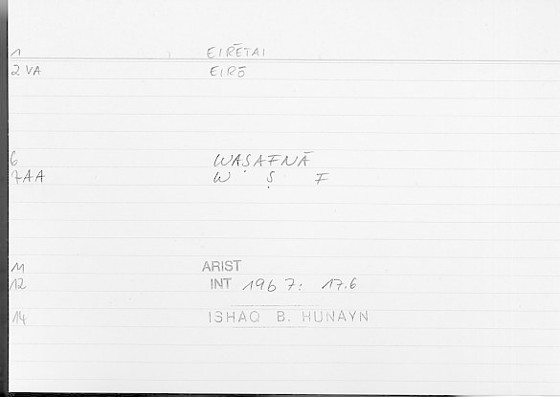 1 EIRĒTAI
2 VA EIRŌ
6 WAṢAFNĀ
7AA W Ṣ F
11 ARIST
12 INT 196 7: 17.6
14 ISHAQ B. HUNAYN